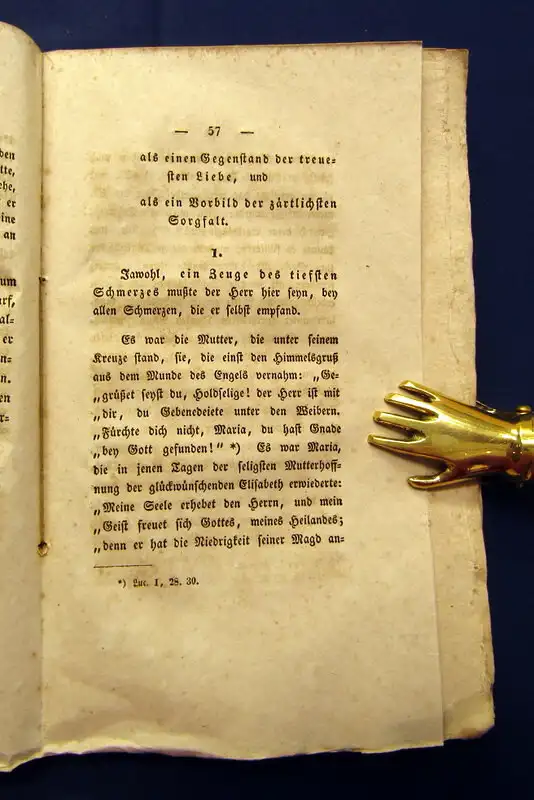 den
tte,
che,
er
ine
an
um
arf,
al=
er
n=
n.
en
r=
— 57 —
als einen Gegenstand der treue=
sten Liebe, und
als ein Vorbild der zärtlichsten
Sorgfalt.
1.
Jawohl, ein Zeuge des tiefsten
Schmerzes mußte der Herr hier seyn, bey
allen Schmerzen, die er selbst empfand.
Es war die Mutter, die unter seinem
Kreuze stand, sie, die einst den Himmelsgruß
aus dem Munde des Engels vernahm: „Ge=
„grüßet seyst du, Holdselige! der Herr ist mit
„dir, du Gebenedeiete unter den Weibern.
„Fürchte dich nicht, Maria, du hast Gnade
„bey Gott gefunden!“ *) Es war Maria,
die in jenen Tagen der seligsten Mutterhoff=
nung der glückwünschenden Elisabeth erwiederte:
„Meine Seele erhebet den Herrn, und mein
„Geist freuet sich Gottes, meines Heilandes;
„denn er hat die Niedrigkeit seiner Magd an=
*) Luc. 1, 28. 30.